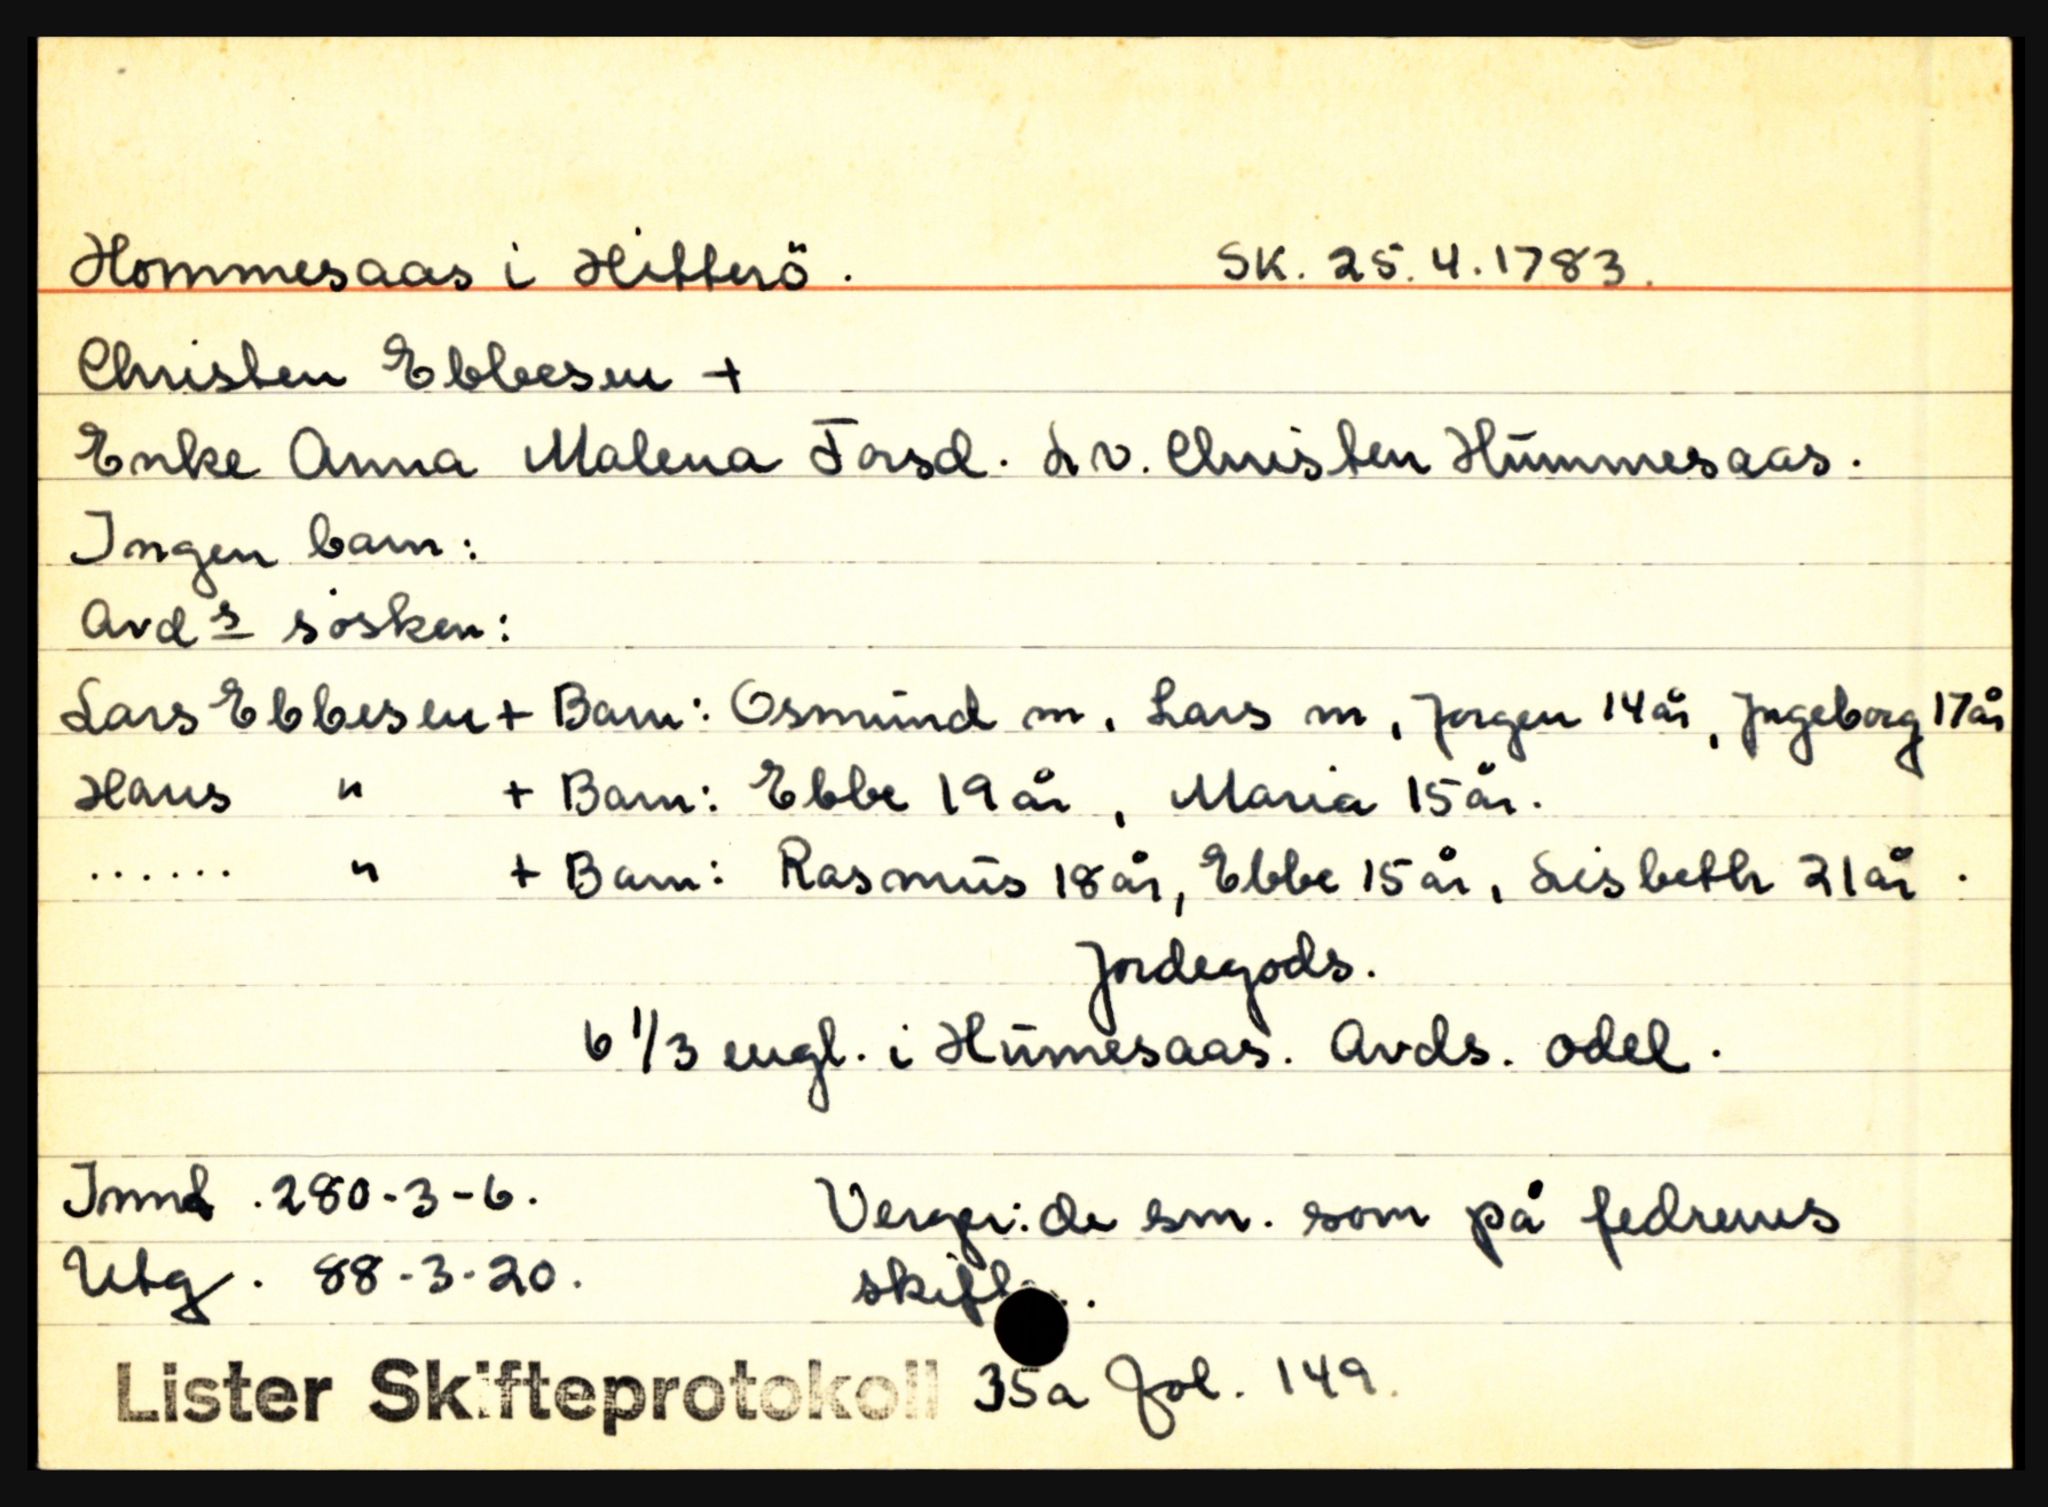 Hommesaas i Hitterö. SK. 25.4.1783.
Christen Ebbesen +
Enke Anna Malena Torsd. Lv. Christen Hümmesaas.
Ingen barn:
Avds søsken:
Lars Ebbesen + Barn: Osmünd m, Lars m, Jørgen 14 år, Ingeborg 17 år
Hans " + Barn: Ebbe 19 år, Maria 15 år.
...... " + Barn: Rasmüs 18 år, Ebbe 15 år, Lisbeth 21 år.
Jordegods.
6 1/3 engl. i Hümesaas. Avds. odel.
Innd. 280-3-6. Verger: de sm. som på fedrenes
Utg. 88-3-20.
Lister Skifteprotokoll 35a fol. 149.